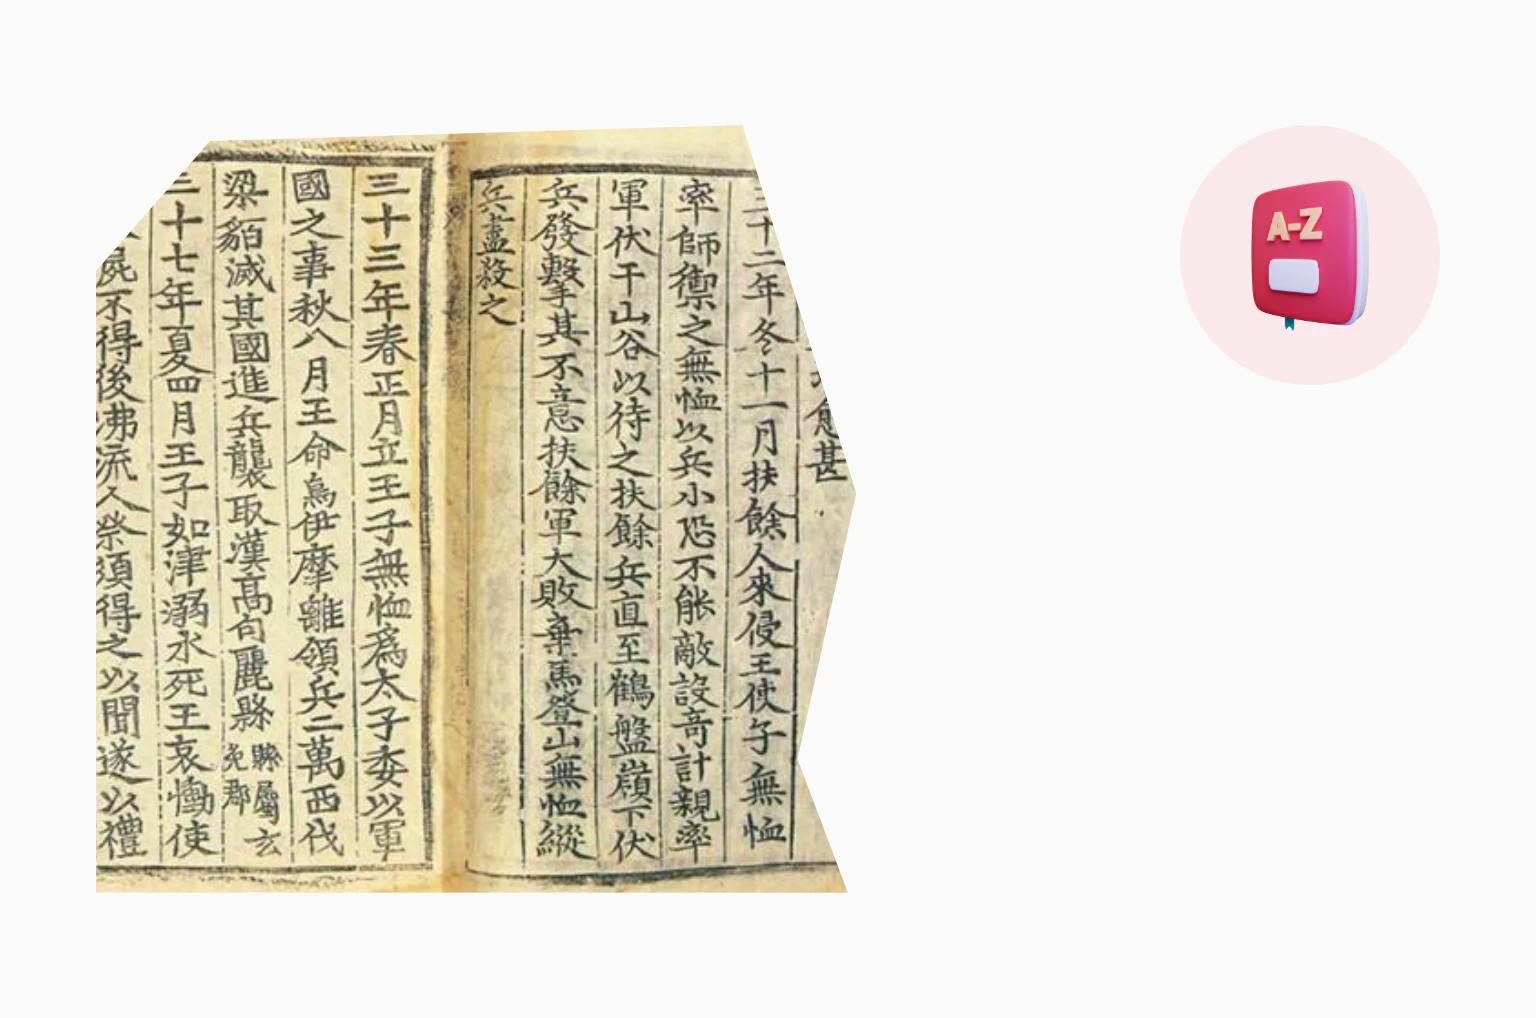 愈甚
三十二年冬十一月扶餘人來侵王使子無恤
率師禦之無恤以兵小恐不能敵設奇計親率
軍伏于山谷以待之扶餘兵直至鶴盤嶺下伏
兵發擊其不意扶餘軍大敗棄馬登山無恤縱
兵盡殺之
三十三年春正月立王子無恤爲太子委以軍
國之事秋八月王命烏伊摩離領兵二萬西伐
梁貊滅其國進兵襲取漢高句麗縣
縣屬玄
免郡
三十七年夏四月王子如津溺水死王哀慟使
屍不得後沸流人祭須得之以聞遂以禮
A-Z